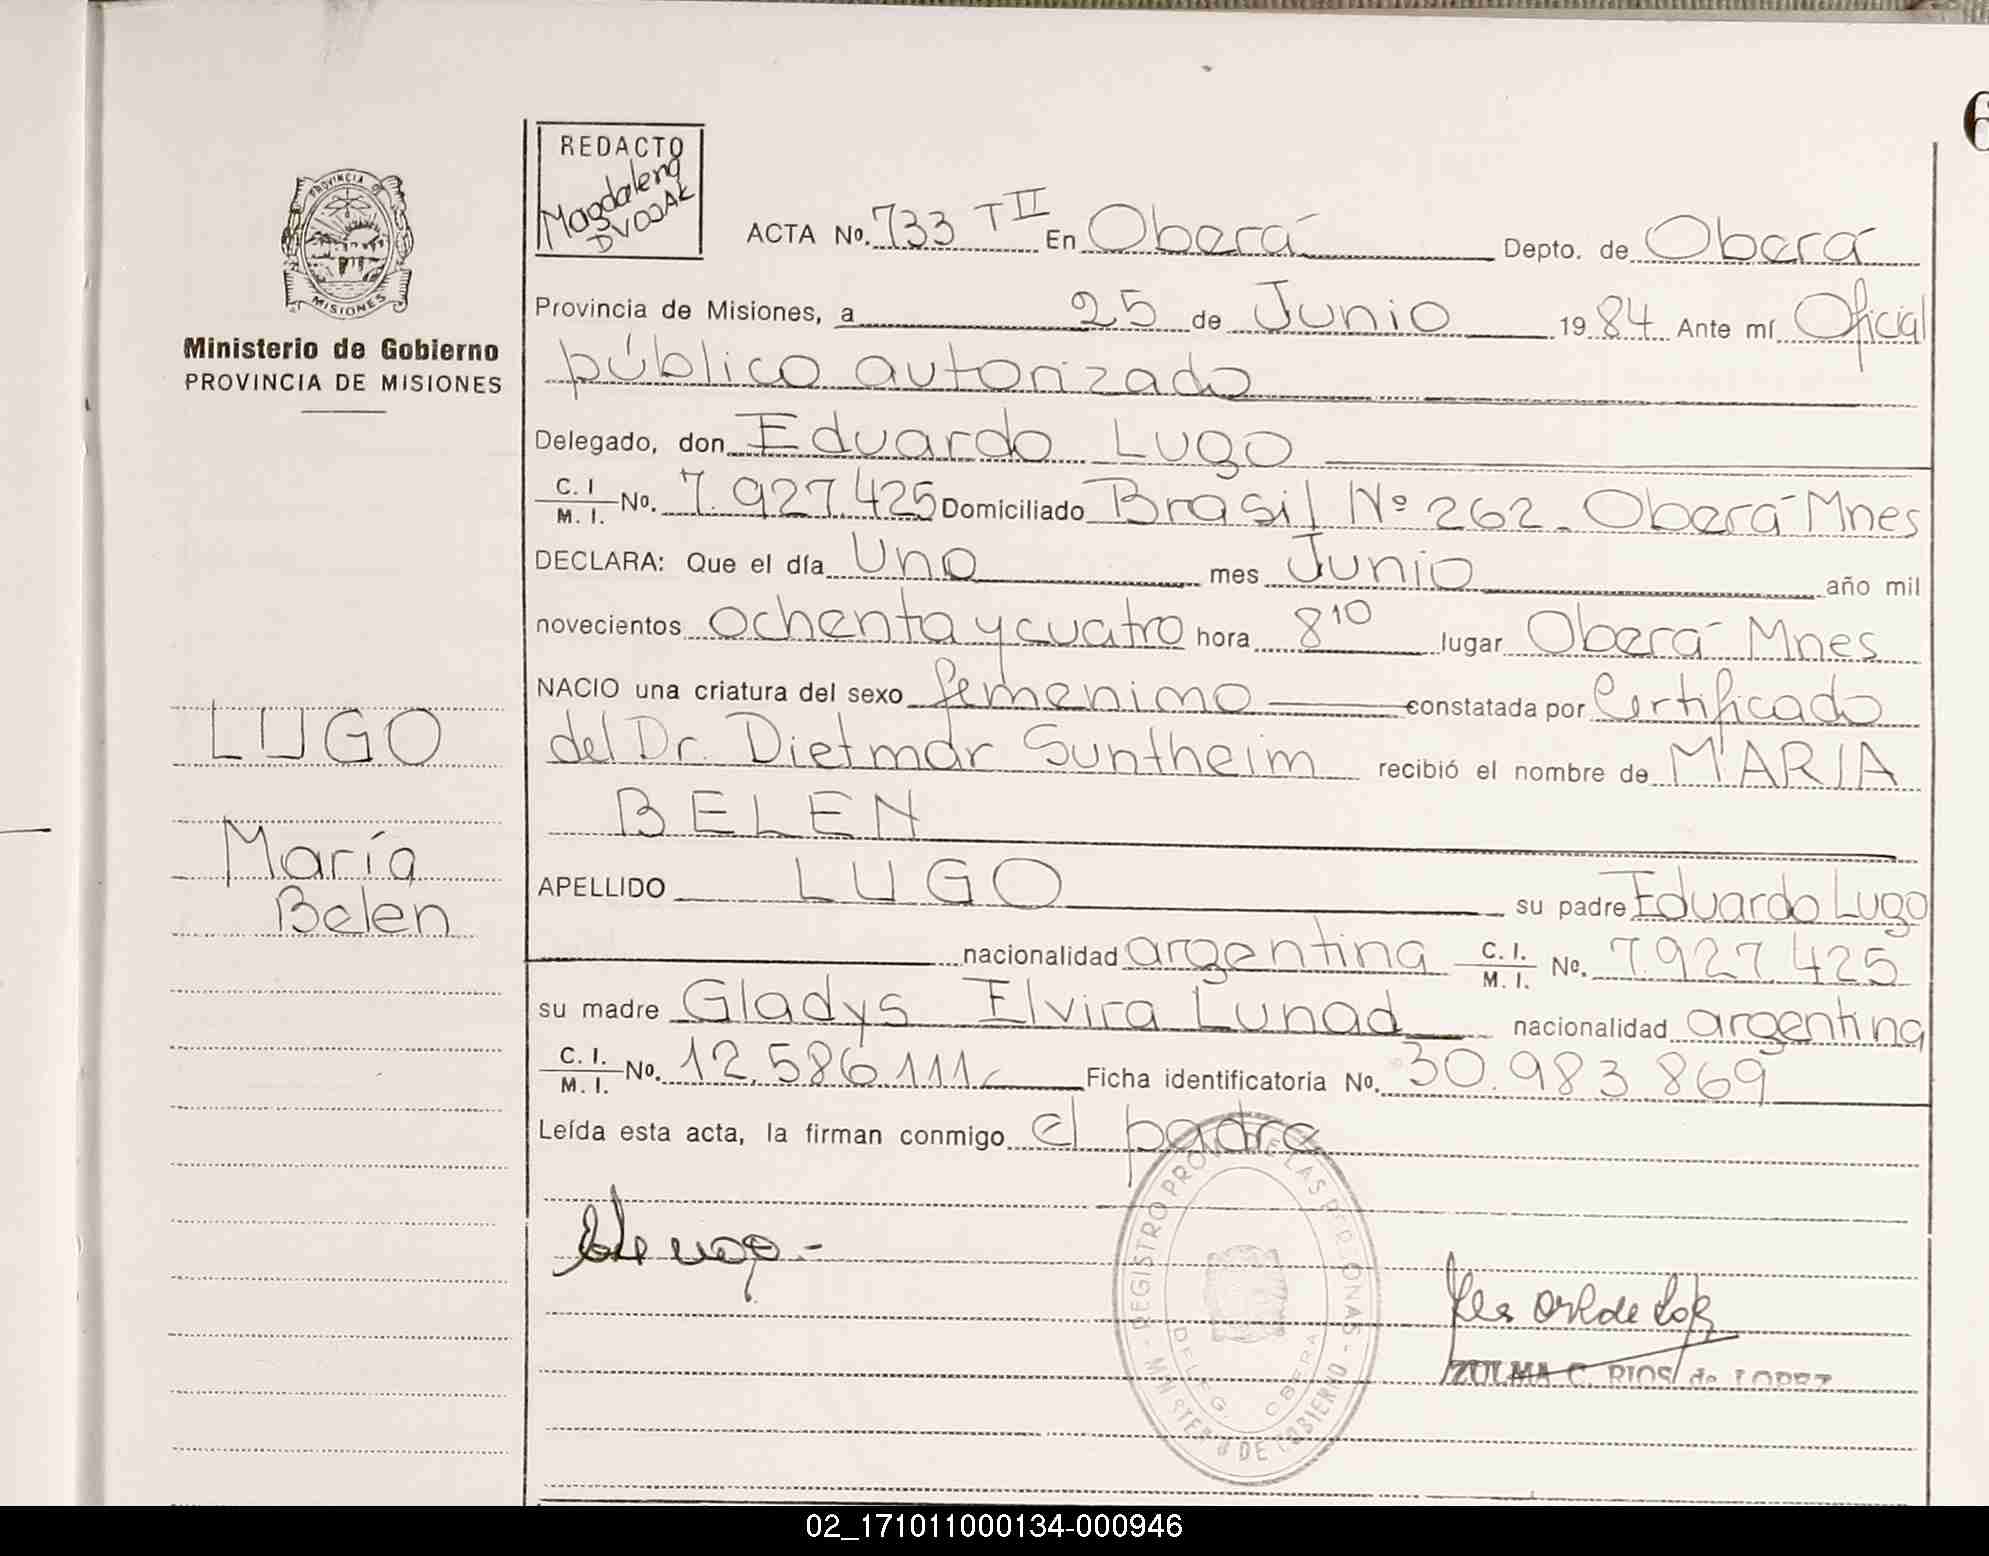 6
PROVINCIA DE
MISIONES
Ministerio de Gobierno
PROVINCIA DE MISIONES
LUGO
María
Belen
REDACTO
Magdalena
DVOJAK
ACTA No. 733 T II En Oberá Depto. de Oberá
Provincia de Misiones, a 25 de Junio 1984 Ante mí Oficial
público autorizado
Delegado, don Eduardo Lugo
C. I / M. I. No. 7.927.425 Domiciliado Brasil Nº 262. Oberá-Mnes
DECLARA: Que el día Uno mes Junio año mil
novecientos ochenta y cuatro hora 8 10 lugar Oberá Mnes
NACIO una criatura del sexo femenino constatada por Certificado
del Dr. Dietmar Suntheim recibió el nombre de MARIA
BELEN
APELLIDO LUGO su padre Eduardo Lugo
nacionalidad argentina C. I. / M. I. No. 7.927.425
su madre Gladys Elvira Lunad nacionalidad argentina
C. I. / M. I. No. 12.586.111 Ficha identificatoria No. 30.983.869
Leída esta acta, la firman conmigo el padre
REGISTRO PROV. DE LAS PERSONAS - MINISTERIO DE GOBIERNO -
DELEG. OBERA
ZULMA C. RIOS de LOPEZ
02_171011000134-000946